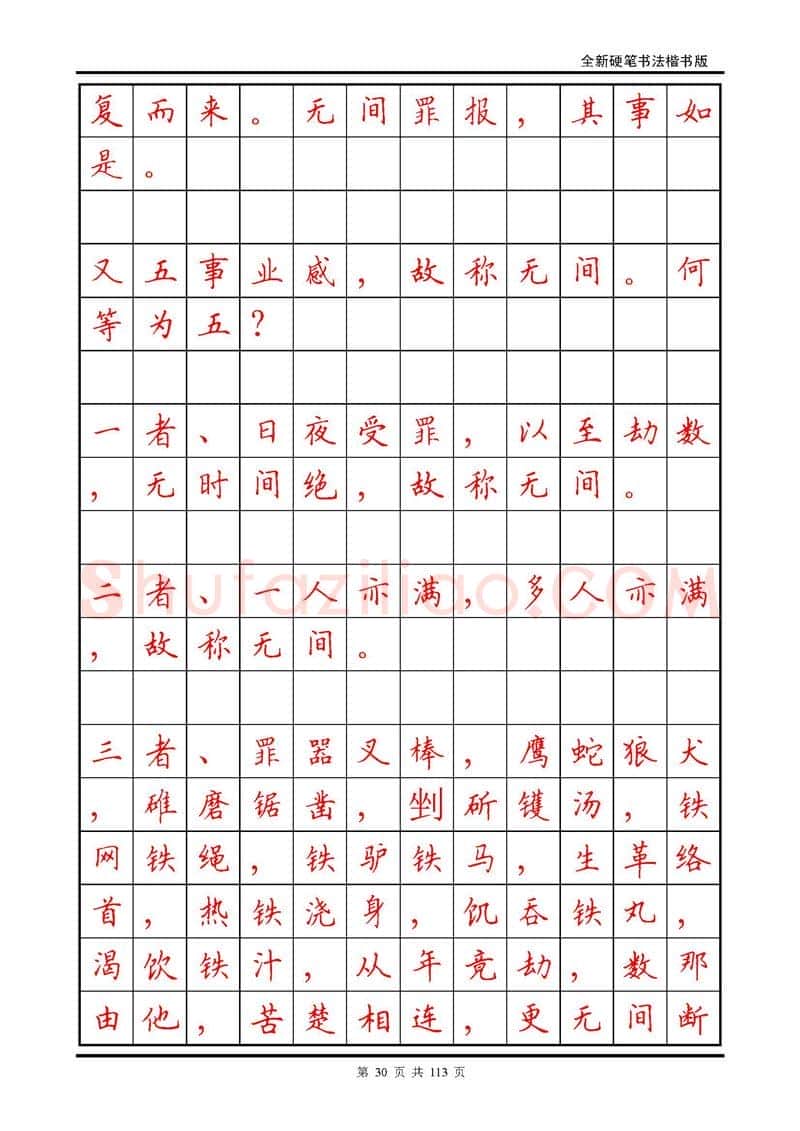 全新硬笔书法楷书版
复而来。无间罪报，其事如
是。
又五事业感，故称无间。何
等为五？
一者、日夜受罪，以至劫数
，无时间绝，故称无间。
二者、一人亦满，多人亦满
，故称无间。
三者、罪器叉棒，鹰蛇狼犬
，碓磨锯凿，剉斫镬汤，铁
网铁绳，铁驴铁马，生革络
首，热铁浇身，饥吞铁丸，
渴饮铁汁，从年竟劫，数那
由他，苦楚相连，更无间断
Shufaziliao.COM
第 30 页 共 113 页